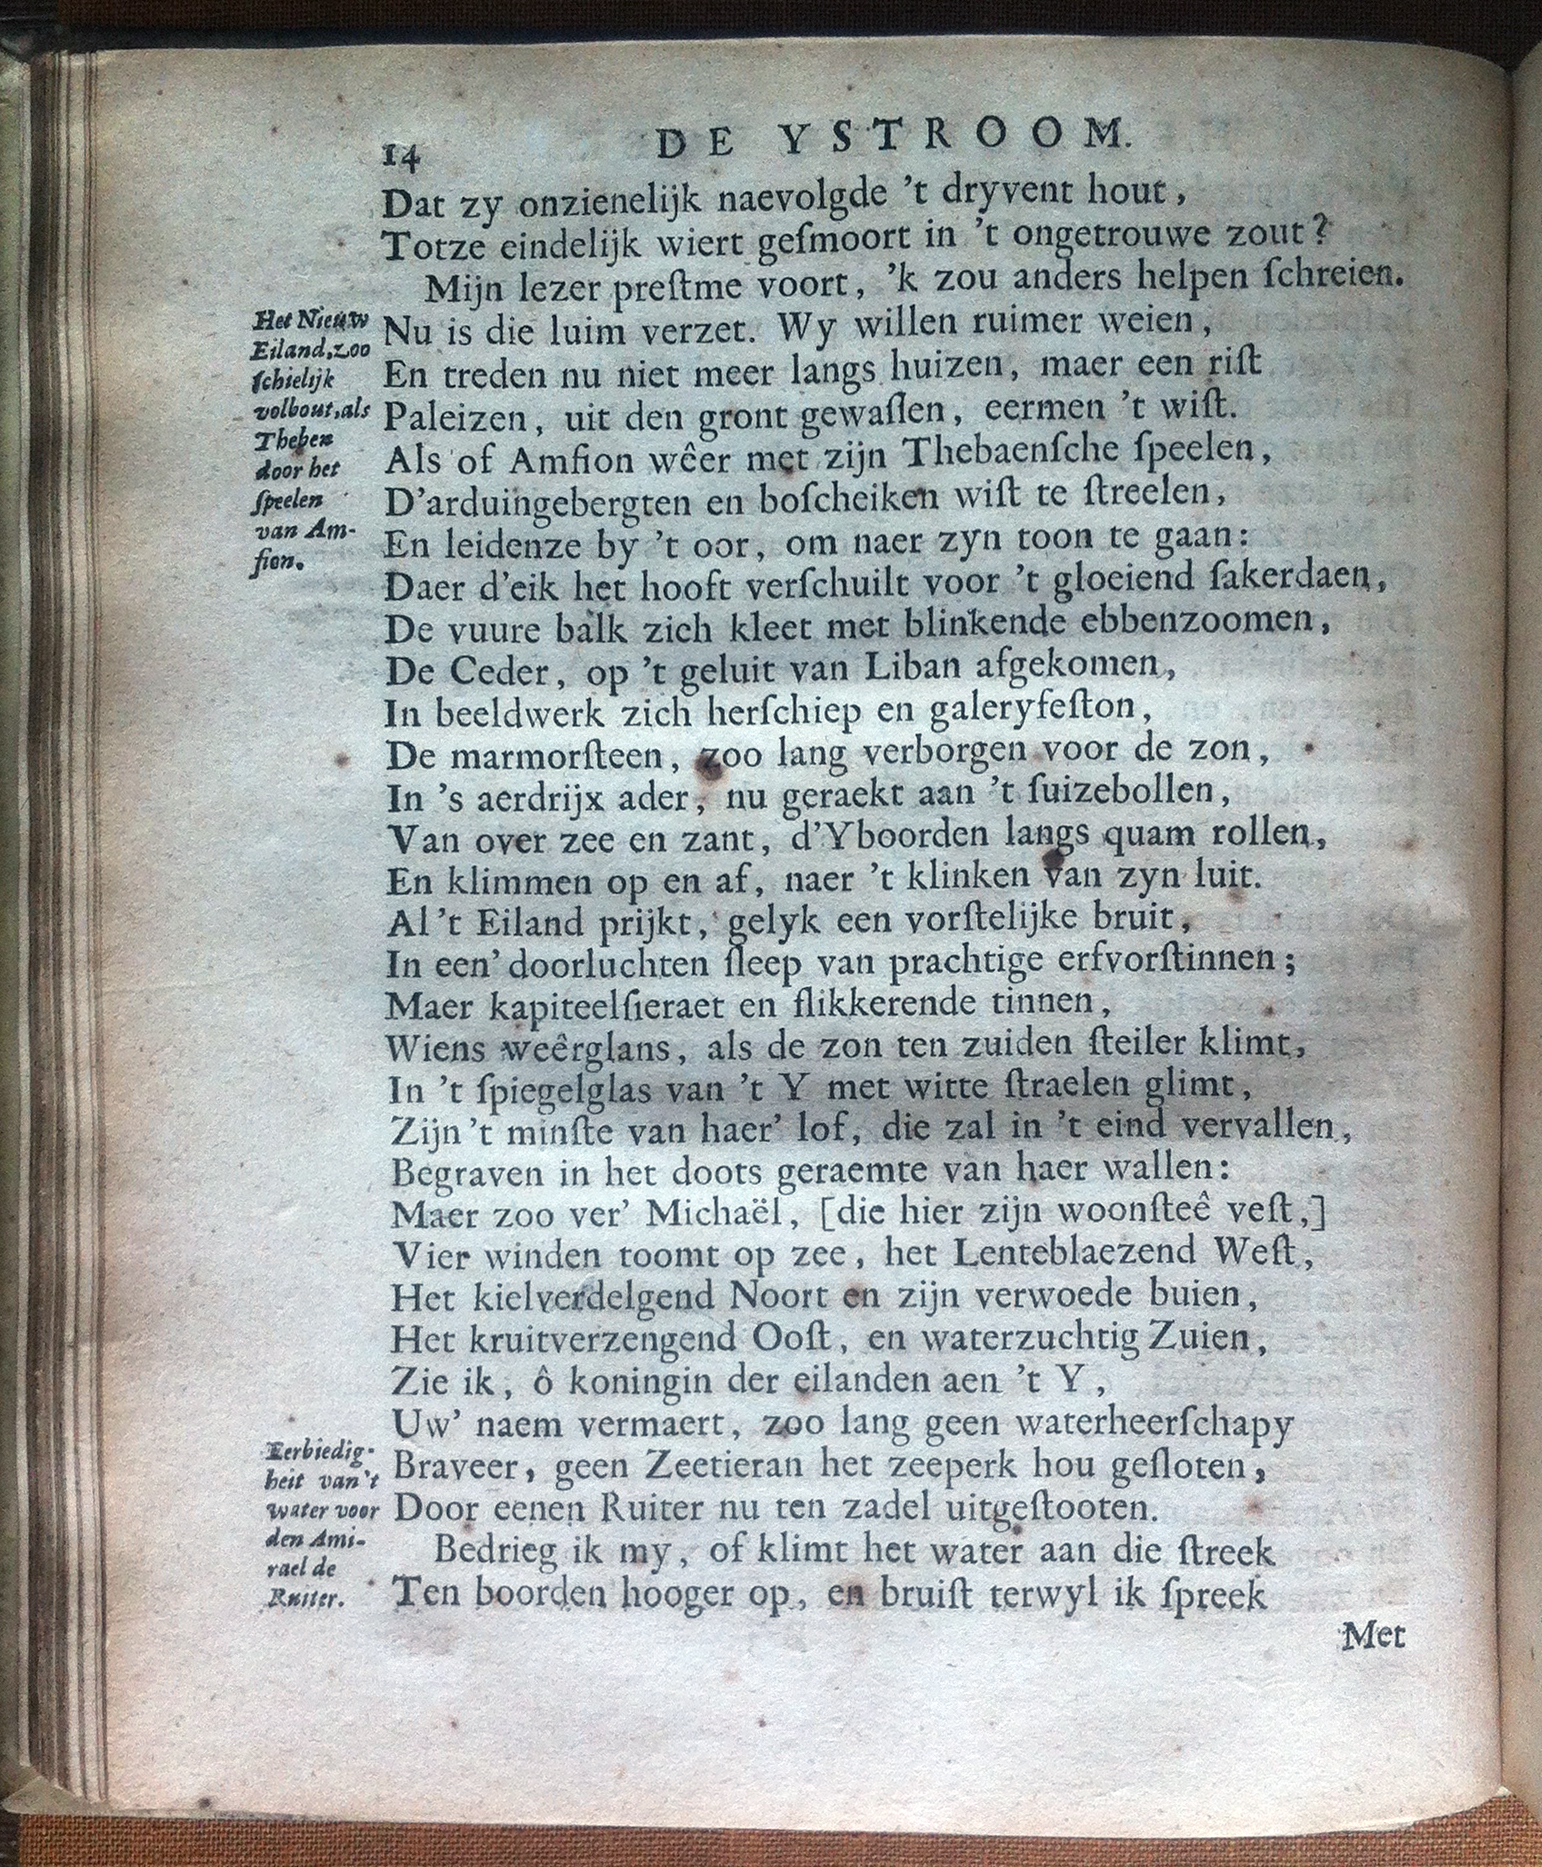 14 DE YSTROOM.
Dat zy onzienelijk naevolgde ’t dryvent hout,
Totze eindelijk wiert geſmoort in ’t ongetrouwe zout?
Mijn lezer preſtme voort, ’k zou anders helpen ſchreien.
Nu is die luim verzet. Wy willen ruimer weien,
En treden nu niet meer langs huizen, maer een riſt
Paleizen, uit den gront gewaſſen, eermen ’t wiſt.
Als of Amfion wêer met zijn Thebaenſche ſpeelen,
D’arduingebergten en boſcheiken wiſt te ſtreelen,
En leidenze by ’t oor, om naer zyn toon te gaan:
Daer d’eik het hooft verſchuilt voor ’t gloeiend ſakerdaen,
De vuure balk zich kleet met blinkende ebbenzoomen,
De Ceder, op ’t geluit van Liban afgekomen,
In beeldwerk zich herſchiep en galeryfeſton,
De marmorſteen, zoo lang verborgen voor de zon,
In ’s aerdrijx ader, nu geraekt aan ’t ſuizebollen,
Van over zee en zant, d’Yboorden langs quam rollen,
En klimmen op en af, naer ’t klinken van zyn luit.
Al ’t Eiland prijkt, gelyk een vorſtelijke bruit,
In een’ doorluchten ſleep van prachtige erfvorſtinnen;
Maer kapiteelſieraet en flikkerende tinnen,
Wiens weêrglans, als de zon ten zuiden ſteiler klimt,
In ’t ſpiegelglas van ’t Y met witte ſtraelen glimt,
Zijn ’t minſte van haer’ lof, die zal in ’t eind vervallen,
Begraven in het doots geraemte van haer wallen:
Maer zoo ver’ Michaël, [die hier zijn woonſteê veſt,]
Vier winden toomt op zee, het Lenteblaezend Weſt,
Het kielverdelgend Noort en zijn verwoede buien,
Het kruitverzengend Ooſt, en waterzuchtig Zuien,
Zie ik, ô koningin der eilanden aen ’t Y,
Uw’ naem vermaert, zoo lang geen waterheerſchapy
Braveer, geen Zeetieran het zeeperk hou geſloten,
Door eenen Ruiter nu ten zadel uitgeſtooten.
Bedrieg ik my, of klimt het water aan die ſtreek
Ten boorden hooger op, en bruiſt terwyl ik ſpreek
Met
Het Nieuw
Eiland, zoo
ſchielijk
volbout, als
Theben
door het
ſpeelen
van Am-
fion.
Eerbiedig-
heit van ’t
water voor
den Ami-
rael de
Ruiter.